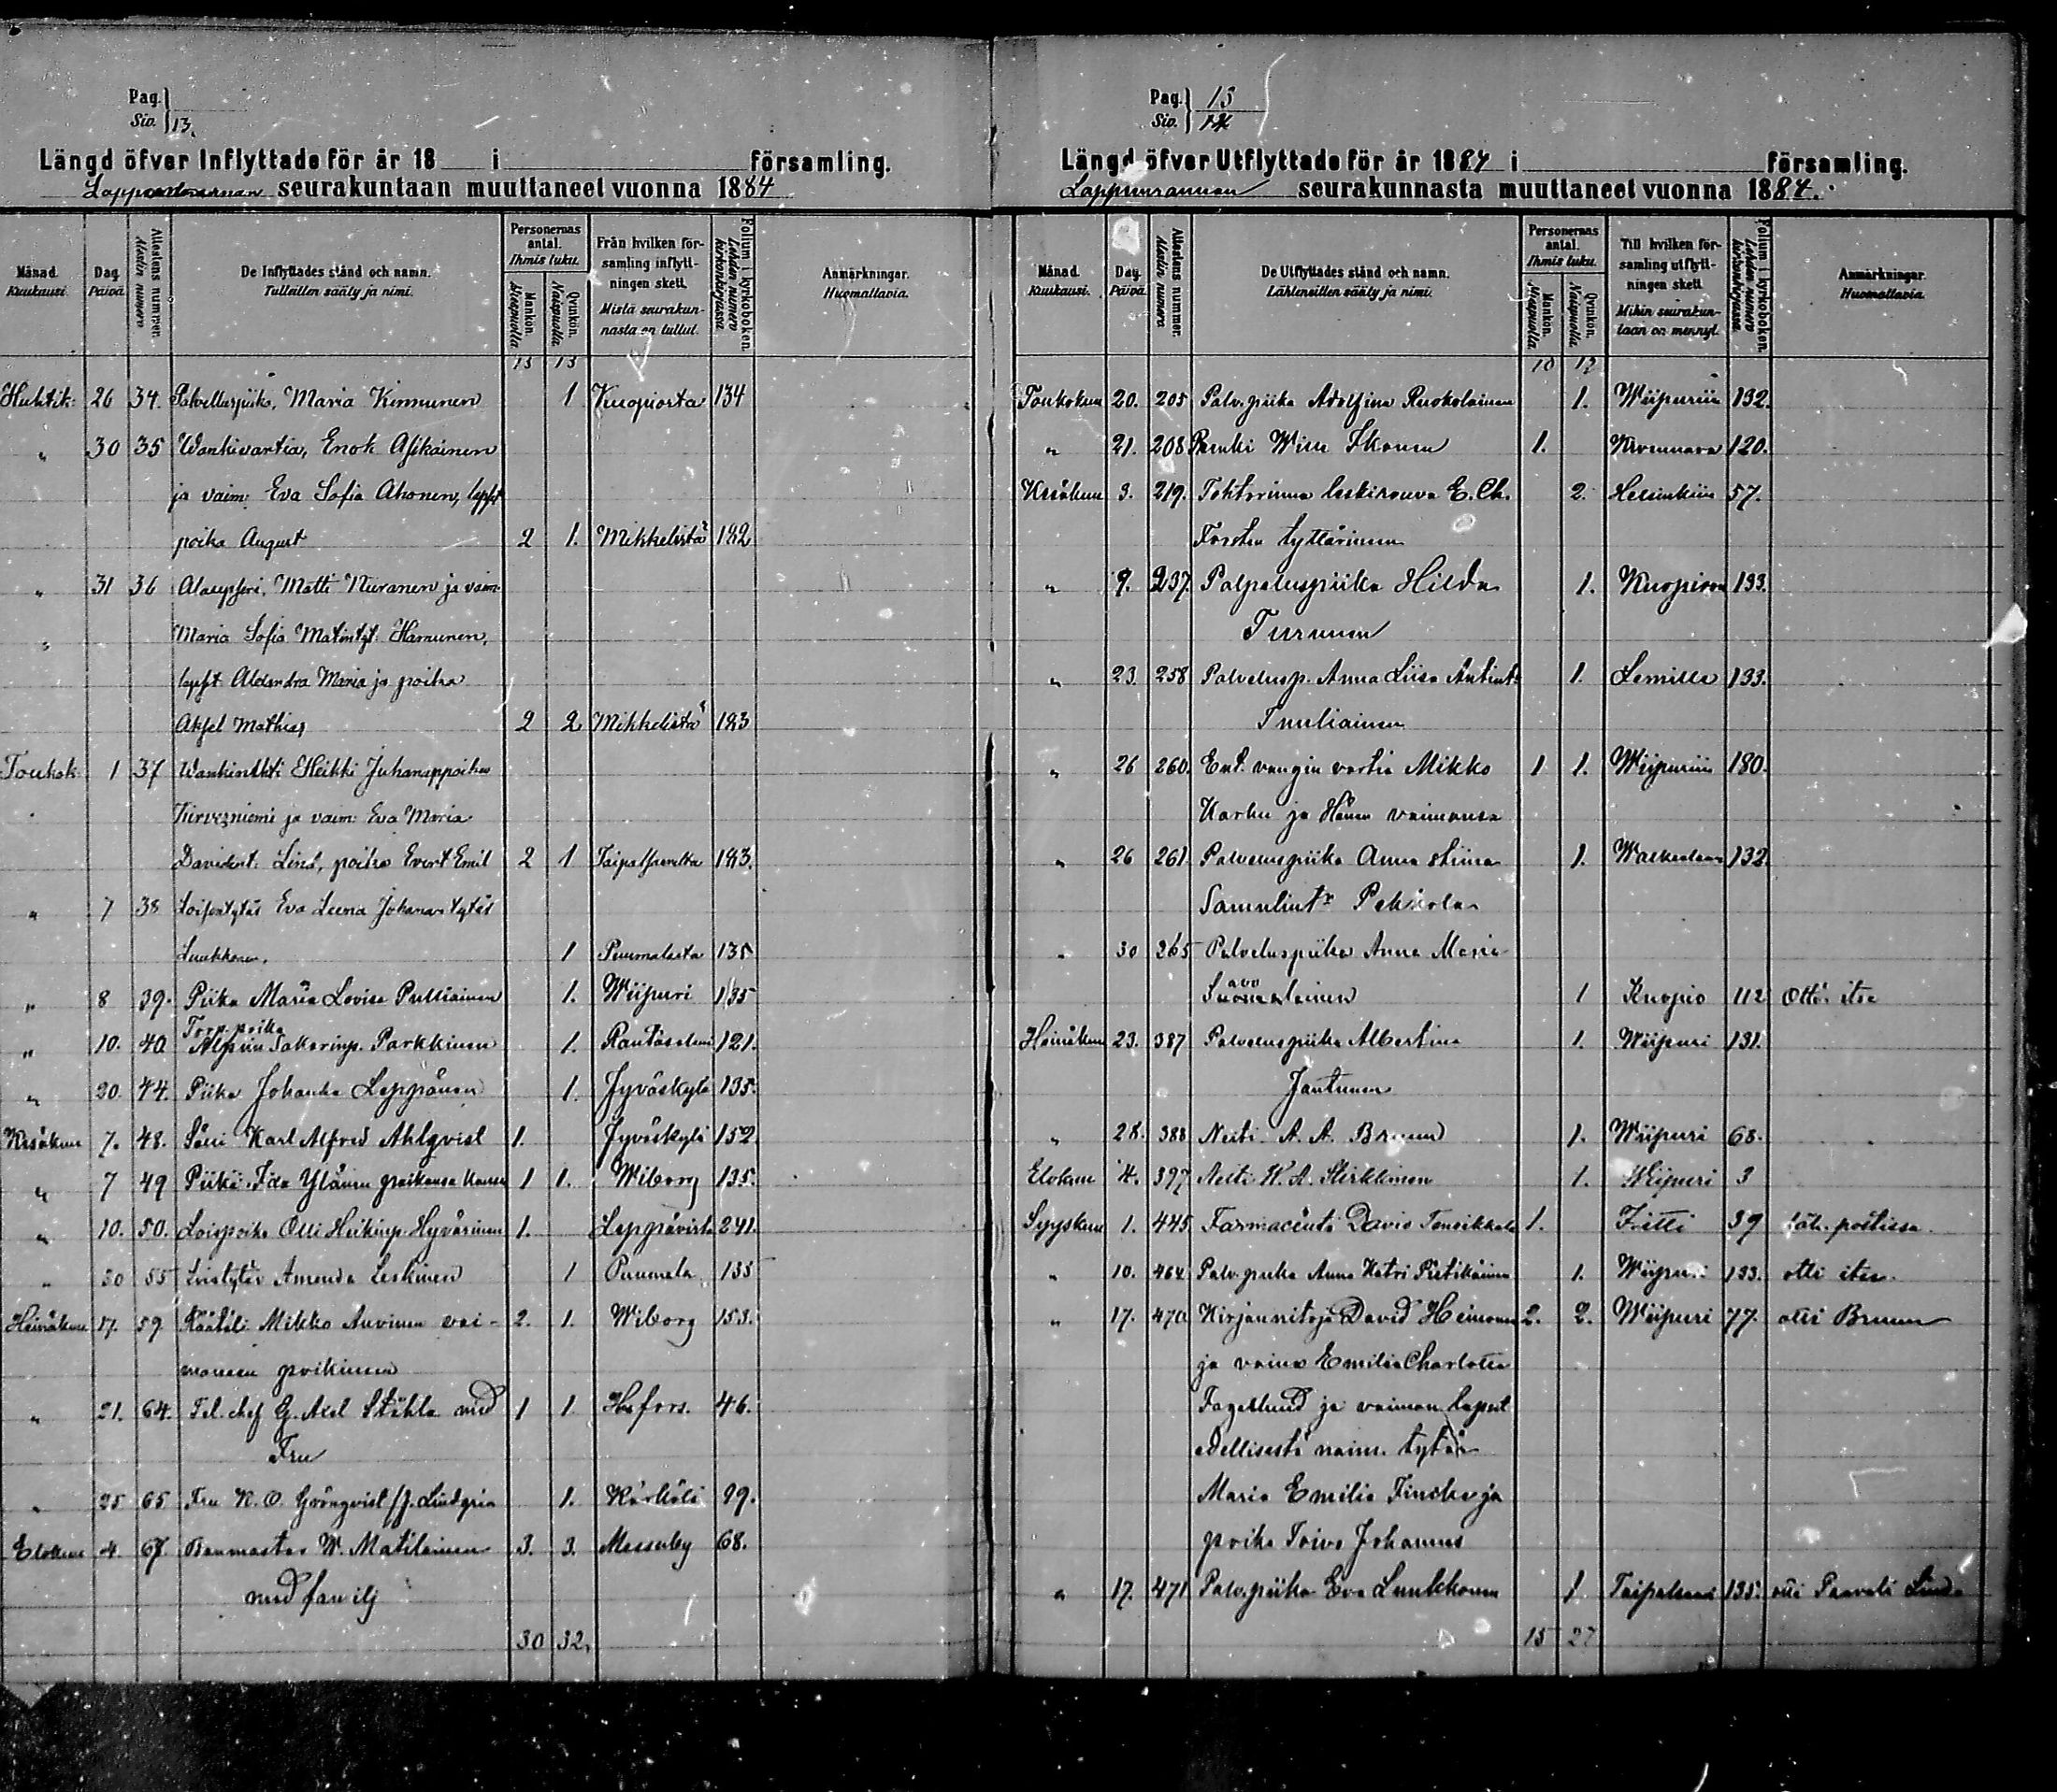 Pag. Siv. 13.
Längd öfver Inflyttade för år 18 i församling.
Lappeenrannan seurakuntaan muuttaneet vuonna 1884
Månad. Kuukausi. Dag. Päivä. Attestens nummer. Alestin numero De Inflyttades stånd och namn. Tulleitten sääty ja nimi. Personernas antal. Ihmis luku. Mankön. Miespuolia Qvinkön. Naispuolia Från hvilken församling inflyttningen skett. Mistä seurakunnasta on tullut. Folium i kyrkoboken. Lehden numero kirkonkirjassa. Anmärkningar. Huomattavia.
15 13
Huhtik. 26 34. Palvelluspiika, Maria Kinnunen 1 Kuopiosta 134
" 30 35 Wankivartia, Enok Asikainen
ja vaim. Eva Sofia Ahonen, lapset
poika August 2 1. Mikkelistä 182
" 31 36 Alaupseri, Matti Nuranen ja vaim.
" Maria Sofia Matintyt. Hamunen,
lapset Alexandra Maria ja poika
Aksel Mathias 2 2 Mikkelistä 183
Toukok. 1 37 Heikki Juhananpoika
Kirvesniemi ja vaim. Eva Maria
Davidint. Lind, poika Evert Emil 2 1 Taipalsaarelta 183.
" 7 38 Loisentytär Eva Leena Johanan tytär
Luukkonen. 1 Puumalasta 135
" 8 39. Piika Maria Lovisa Pulliainen 1. Wiipuri 135
Torp. poika
" 10. 40 Sakarinp. Parkkinen 1. Rantasalmi 121.
" 20. 44. Piika Johanna Leppänen 1. Jyväskylä 135.
Kesäkuu 7. 48. Karl Alfred Ahlqvist 1. Jyväskylä 152
" 7 49 Piika Ida Ylänen poikansa kanssa 1 1. Wiborg 135.
" 10. 50. Loispoika Olli Heikinp. Hyvärinen 1. Leppävirta 241.
" 30 55 Loistytär Amanda Leskinen 1 Puumala 135
Heinäkuu 17. 59. Räätäli Mikko Auvinen vai- 2. 1. Wiborg 153.
monsa poikineen
" 21. 64. Tel. chef G. Axel Ståhle med 1 1. H:fors. 46.
Fru
" 25 65 Fru K. O. Grönqvist f. Lindgrén 1. Kärkölä 99.
Elokuu 4. 67. Banmästar W. Matilainen 3. 3. Messuby 68.
med familj
30 32.
Pag. Siv. 13 14
Längd öfver Utflyttade för år 1884 i församling.
Lappeenrannan seurakunnasta muuttaneet vuonna 1884.
Månad. Kuukausi. Dag. Päivä. Attestens nummer. Alestin numero De Utflyttades stånd och namn. Lähteneitten sääty ja nimi. Personernas antal. Ihmis luku. Mankön. Miespuolia Qvinkön. Naispuolia Till hvilken församling utflyttningen skett Mihin seurakuntaan on mennyt. Folium i kyrkoboken. Lehden numero kirkonkirjassa. Anmärkningar. Huomattavia.
10 12
Toukokuu 20. 205 Palv. piika Adolfina Ruokolainen 1. Wiipuriin 132.
" 21. 208 Renki Wille Ikonen 1. Kivennava 120.
Kesäkuu 3. 219. Tohtorinna leskirouva E. Ch. 2. Helsinkiin 57.
Forstén tyttärineen
" 9. 237. Palveluspiika Hilda 1. Kuopioon 133.
Turunen
" 23. 258 Palvelusp. Anna Liisa Antint. 1. Lemille 133.
Tuuliainen
" 26 260. Ent. vangin vartia Mikko 1 1. Wiipuriin 180.
Karhu ja Hänen vaimonsa
" 26 261 Palveluspiika Anna Stiina 1. Walkealaan 132
Samulintr Pekkola
" 30 265 Palveluspiika Anna Maria
Suomalainen 1 Kuopio 112 Otti itse
Heinäkuu 23. 387 Palveluspiika Albertina 1. Wiipuri 131.
Jantunen
" 28. 388 Neiti A. A. Bruun 1. Wiipuri 68.
Elokuu 4. 397 Neiti K. A. Stirkkinen 1. Wiipuri 3
Syyskuu 1. 445 Farmaceuti David Tensikkala 1. Iitti 39 läh. postissa
" 10. 464 Palv. piika Anna Katri Pietikäinen 1. Wiipuri 133. otti itse.
" 17. 470 Kirjannitoja David Heinonen 2. 2. Wiipuri 77. otti Bruun
ja vaimo Emilia Charlotta
Fagerlund ja vaimon lapset
edellisestä naim. tytär
Maria Emilia Fincke ja
poika Toivo Johannes
" 17. 471 Palv. piika Eva Luukkonen 1 Taipalsaari 135. otti Paavali Linda
15 27